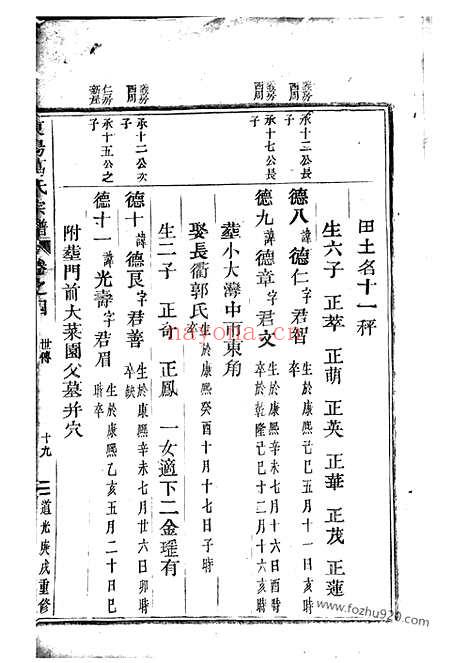 田土名十一秤
生六子 正萃 正萌 正英 正華 正茂 正蓮
義房酉周 承十二公長子 德八 諱德仁字君智 生於康熙己巳五月十一日亥時卒
義房酉周 承十七公長子 德九 諱德章字君文 生於康熙辛未七月十六日酉時卒於乾隆己巳十二月十六亥時
葬小大灣中塅東角
娶長衝郭氏 生於康熙癸酉十月十七日子時
生二子 正奇 正鳳 一女適下二金瑾有
義房酉周 承十二公次子 德十 諱德良字君善 生於康熙辛未七月廿六日卯時卒缺
仁房新屋 承十五公之子 德十一 諱光壽字君眉 生於康熙乙亥五月二十日巳時卒
附葬門前大菜園父墓并穴
氏宗譜 卷之四 世傳 十九 道光庚戌重修
nayona.cn
www.fozhu920.com